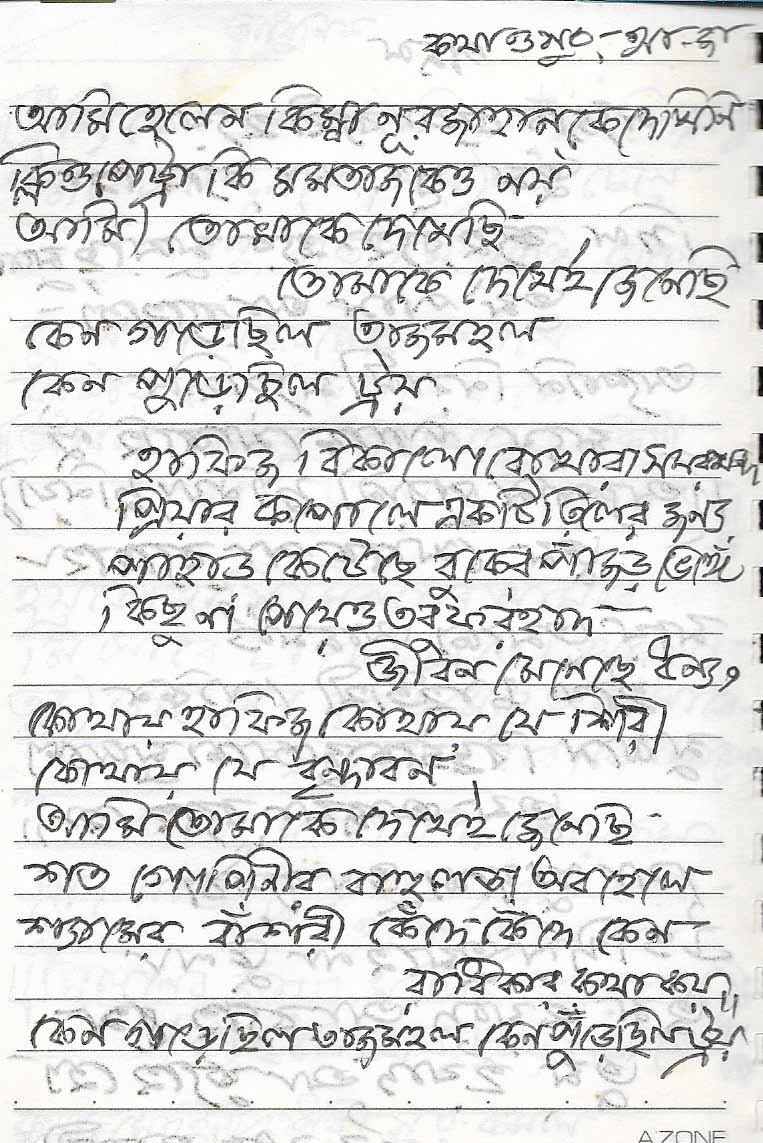 কথা ও সুর,- আ-জা
আমি হেলেন কিম্বা নূরজাহানকে দেখিনি
ক্লিওপেট্রা কি মমতাজকেও নয়
আমি তোমাকে দেখেছি
তোমাকে দেখেই জেনেছি
কেন গড়েছিল তাজমহল
কেন পুড়েছিল ট্রয়
হাফিজ বিকালো বোখারা সমরখন্দ
প্রিয়ার কপোলে একটি তিলের জন্য
পাহাড় কেটেছে বুকের পাঁজড় ভেঙ্গে
কিছু না পেয়েও তবু ফরহাদ
জীবন মেনেছে ধন্য,
কোথায় হাফিজ কোথায় যে শিরি
কোথায় যে বৃন্দাবন
আমি তোমাকে দেখেই জেনেছি
শত গোপিনীর বাহুলতা অবহেলে
শ্যামের বাঁশরী কেঁদে কেঁদে কেন
রাধিকার কথা কয়॥
কেন গড়েছিল তাজমহল কেন পুঁড়েছিল ট্রয়
A ZONE